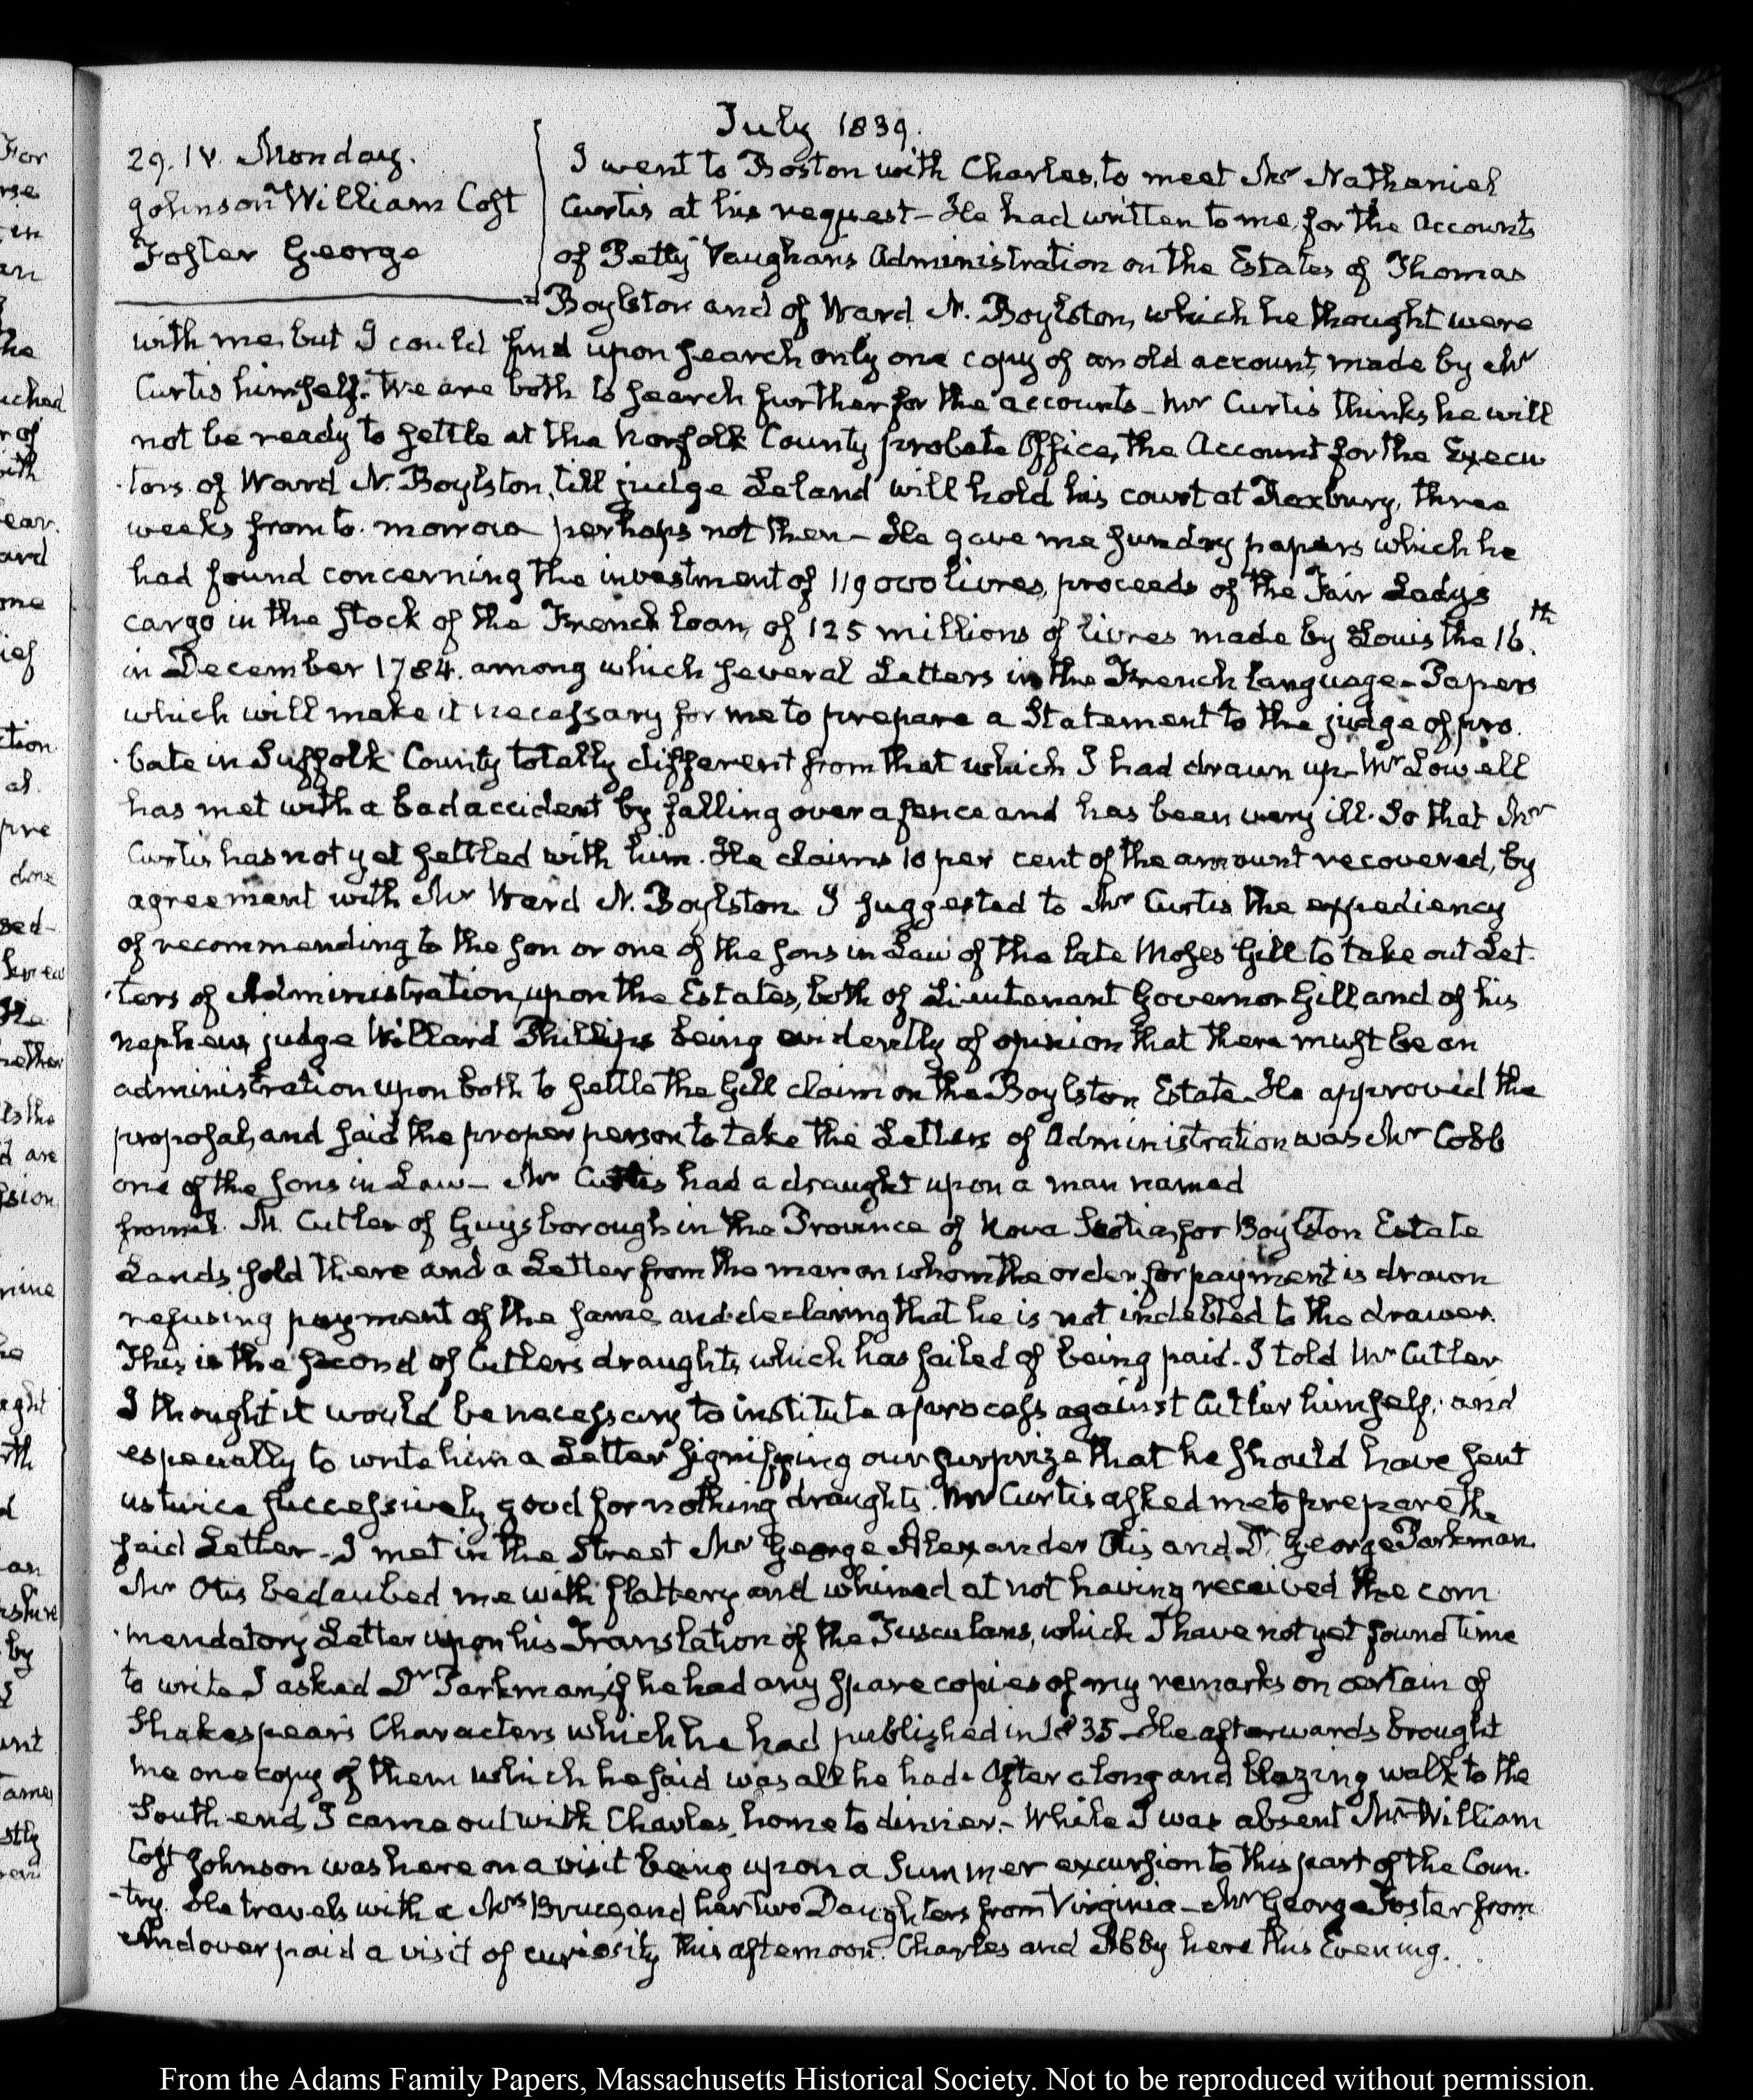 July 1839.
29. IV. Monday.
Johnson William Cost
Foster George
I went to Boston with Charles, to meet Mr Nathaniel
Curtis at his request – He had written to me, for the Accounts
of Petty Vaughan's Administration on the Estates of Thomas
Boylston and of Ward N. Boylston, which he thought were
with me, but I could find upon search only one copy of an old account, made by Mr
Curtis himself. We are both to search further for the accounts – Mr Curtis thinks he will
not be ready to settle at the Norfolk County probate Office, the Account for the Execu
-tors of Ward N. Boylston, till judge Leland will hold his court at Roxbury, three
weeks from to-morrow perhaps not then – He gave me sundry papers which he
had found concerning the investment of 119000 livres, proceeds of the Fair Lady's
cargo in the stock of the French loan, of 125 millions of livres made by Louis the 16.th
in December 1784. among which several Letters in the French language – Papers
which will make it necessary for me to prepare a Statement to the judge of pro-
-bate in Suffolk County totally different from that which I had drawn up – Mr Lowell
has met with a bad accident by falling over a fence and has been very ill. So that Mr
Curtis has not yet settled with him. He claims 10 per cent of the amount recovered, by
agreement with Mr Ward N. Boylston. I suggested to Mr Curtis the expediency
of recommending to the son or one of the sons in Law of the late Moses Gill to take out Let-
-ters of Administration upon the Estates, both of Lieutenant Governor Gill and of his
nephew, judge Willard Phillips being evidently of opinion that there must be an
administration upon both to settle the Gill claim on the Boylston Estate – He approved the
proposal, and said the proper person to take the Letters of Administration was Mr Cobb
one of the sons in Law – Mr Curtis had a draught upon a man named
from R. M. Cutler of Guysborough in the Province of Nova Scotia, for Boylston Estate
Lands, sold there and a Letter from the man on whom the order for payment is drawn
refusing payment of the same, and declaring that he is not indebted to the drawer.
This is the second of Cutler's draughts, which has failed of being paid. I told Mr Cutler
I thought it would be necessary to institute a process against Cutler himself; and
especially to write him a Letter signifying our surprize that he should have sent
us twice successively good for nothing draughts. Mr Curtis asked me to prepare the
said Letter – I met in the Street Mr George Alexander Otis and Dr George Parkman.
Mr Otis bedaubed me with flattery and whined at not having received the com
-mendatory Letter upon his Translation of the Tusculans, which I have not yet found time
to write. I asked Dr Parkman, if he had any spare copies of my remarks on certain of
Shakespear's Characters which he had published in 1835 – He afterwards brought
me one copy of them which he said was all he had. After a long and blazing walk to the
South end, I came out with Charles, home to dinner. – While I was absent Mr William
Cost Johnson was here on a visit being upon a Summer excursion to this part of the Coun-
-try. He travels with a Mrs Bruce, and her two Daughters from Virginia – Mr George Foster from
Andover paid a visit of curiosity this afternoon. Charles and Abby here this Evening.
From the Adams Family Papers, Massachusetts Historical Society. Not to be reproduced without permission.